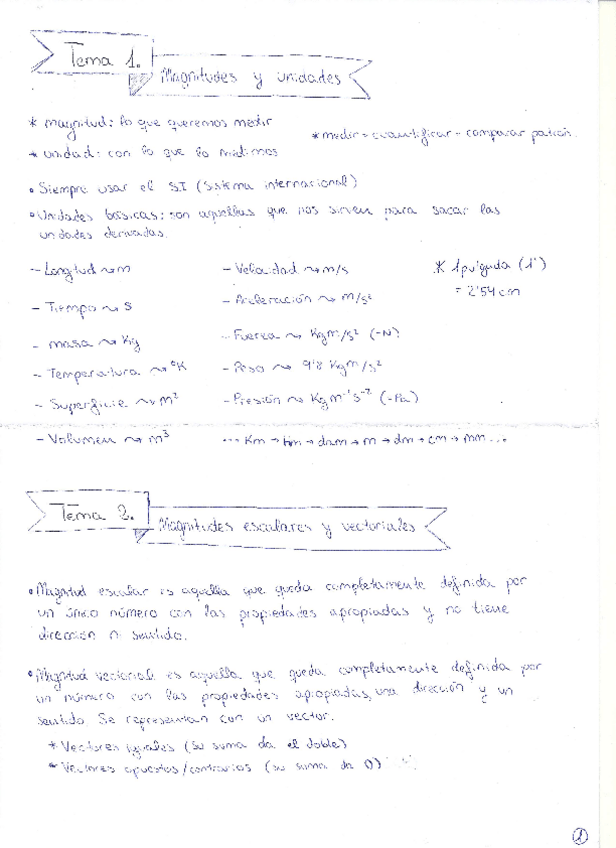 Tema 1.
Magnitudes y unidades
* magnitud: lo que queremos medir
* medir = cuantificar - comparar patrón.
* unidad: con lo que lo medimos
• Siempre usar el SI (Sistema internacional)
• Unidades básicas: son aquellas que nos sirven para sacar las
unidades derivadas.
- Longitud → m
- Velocidad → m/s
* 1 pulgada (1")
- Tiempo → s
- Aceleración → m/s²
= 2'54 cm
- masa → Kg
- Fuerza → Kgm/s² (-N)
- Temperatura → °K
- Peso → 9'8 Kgm/s²
- Superficie → m²
- Presión → Kg m⁻¹ s⁻² (-Pa)
- Volumen → m³
... Km → Hm → dam → m → dm → cm → mm...
Tema 2.
Magnitudes escalares y vectoriales
• Magnitud escalar es aquella que queda completamente definida por
un único número con las propiedades apropiadas y no tiene
dirección ni sentido.
• Magnitud vectorial es aquella que queda completamente definida por
un número con las propiedades apropiadas, una dirección y un
sentido. Se representan con un vector.
* Vectores iguales (su suma da el doble)
* Vectores opuestos/contrarios (su suma da 0)
1